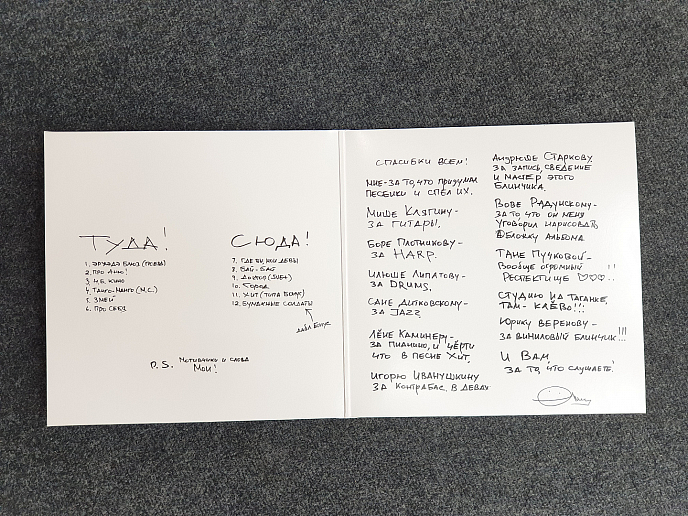 Туда!
1. Эрудадэ блюз (песец)
2. Про Аню!
3. Ч.Б. кино
4. Танго-Манго (М.С.)
5. Змей
6. Про Себя
Сюда!
7. Где вы, мои девы
8. Вай-бай
9. Доктор (Swet)
10. Город
11. Хит (типа бонус)
12. Бумажные солдаты
дабл бонус
P.S. Мотивчики и слова
Мои!
Спасибки всем!
Мне - за то, что придумал
песенки и спел их.
Мише Клягину -
за гитары,
Боре Плотникову -
за HARP.
Илюше Липатову -
за DRUMS,
Сане Дитковскому -
за JAZZ,
Лёне Каминеру -
за пианино, и чёрти
что в песне Хит,
Игорю Иванушкину
за контрабас в девах
Андрюше Старкову,
за запись, сведение
и мастер этого
блинчика.
Вове Радунскому -
за то что он меня
уговорил нарисовать
обложку альбома
Тане Пучковой -
вообще огромный !!
респектище ♡♡♡..
Студию на Таганке,
там - клёво!!!
Юрику Веренову -
за виниловый блинчик!!!
И Вам
за то, что слушаете!